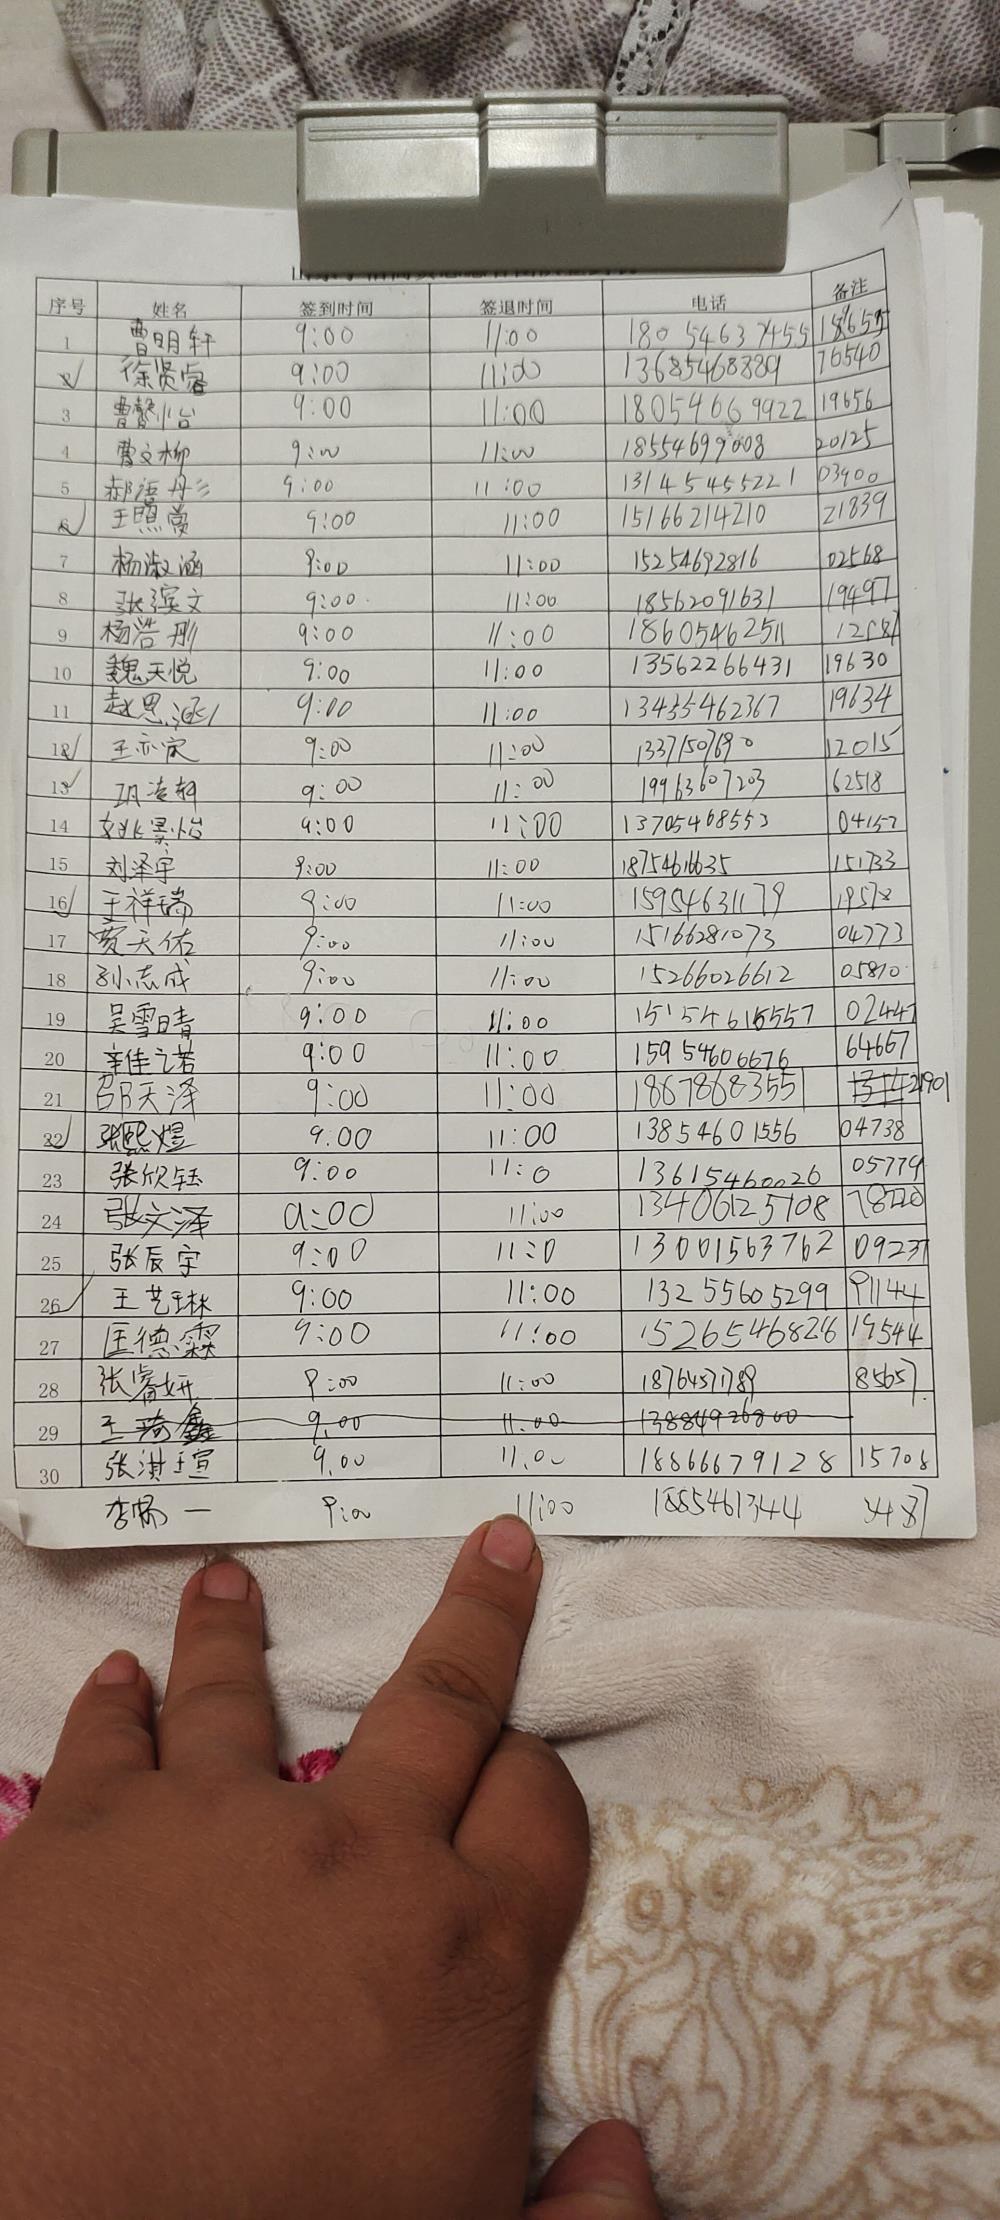 序号 姓名 签到时间 签退时间 电话 备注
1 曹明轩 9:00 11:00 180 5463 7455 18659
2 徐贤睿 9:00 11:00 13685468889 76540
3 曹馨怡 9:00 11:00 18054669922 19656
4 曹文柳 9:00 11:00 18554699008 20125
5 郝语彤 9:00 11:00 13145455221 03900
6 王照棠 9:00 11:00 15166214210 21839
7 杨淑涵 9:00 11:00 15254692816 02568
8 张滨文 9:00 11:00 18562091631 19497
9 杨浩彤 9:00 11:00 18605462511
10 魏天悦 9:00 11:00 13562266431 19630
11 赵思涵 9:00 11:00 13455462367 19634
12 王亦宸 9:00 11:00 13371507690 12015
13 巩凌轩 9:00 11:00 19963607203 62518
14 姚景怡 9:00 11:00 13705468553 04157
15 刘泽宇 9:00 11:00 18754616635 151733
16 王祥瑞 9:00 11:00 15954631179 19578
17 贾天佑 9:00 11:00 15166281073 04773
18 孙志成 9:00 11:00 15266026612 05810
19 吴雪晴 9:00 11:00 15154616557 02447
20 辛佳之若 9:00 11:00 15954606676 64667
21 邵天泽 9:00 11:00 18678683551 21901
22 张熙煜 9:00 11:00 13854601556 04738
23 张欣钰 9:00 11:0 13615460026 05779
24 张文泽 9:00 11:00 13406125708 78220
25 张辰宇 9:00 11:0 13001563762 09237
26 王艺琳 9:00 11:00 13255605299 91144
27 匡德霖 9:00 11:00 1526546826 19544
28 张睿妍 9:00 11:00 18764571789 85657
29 王琦鑫 9.00 11.00 13884926800
30 张淇瑄 9.00 11.00 18866679128 15708
李 一 9:00 11:00 1885461344